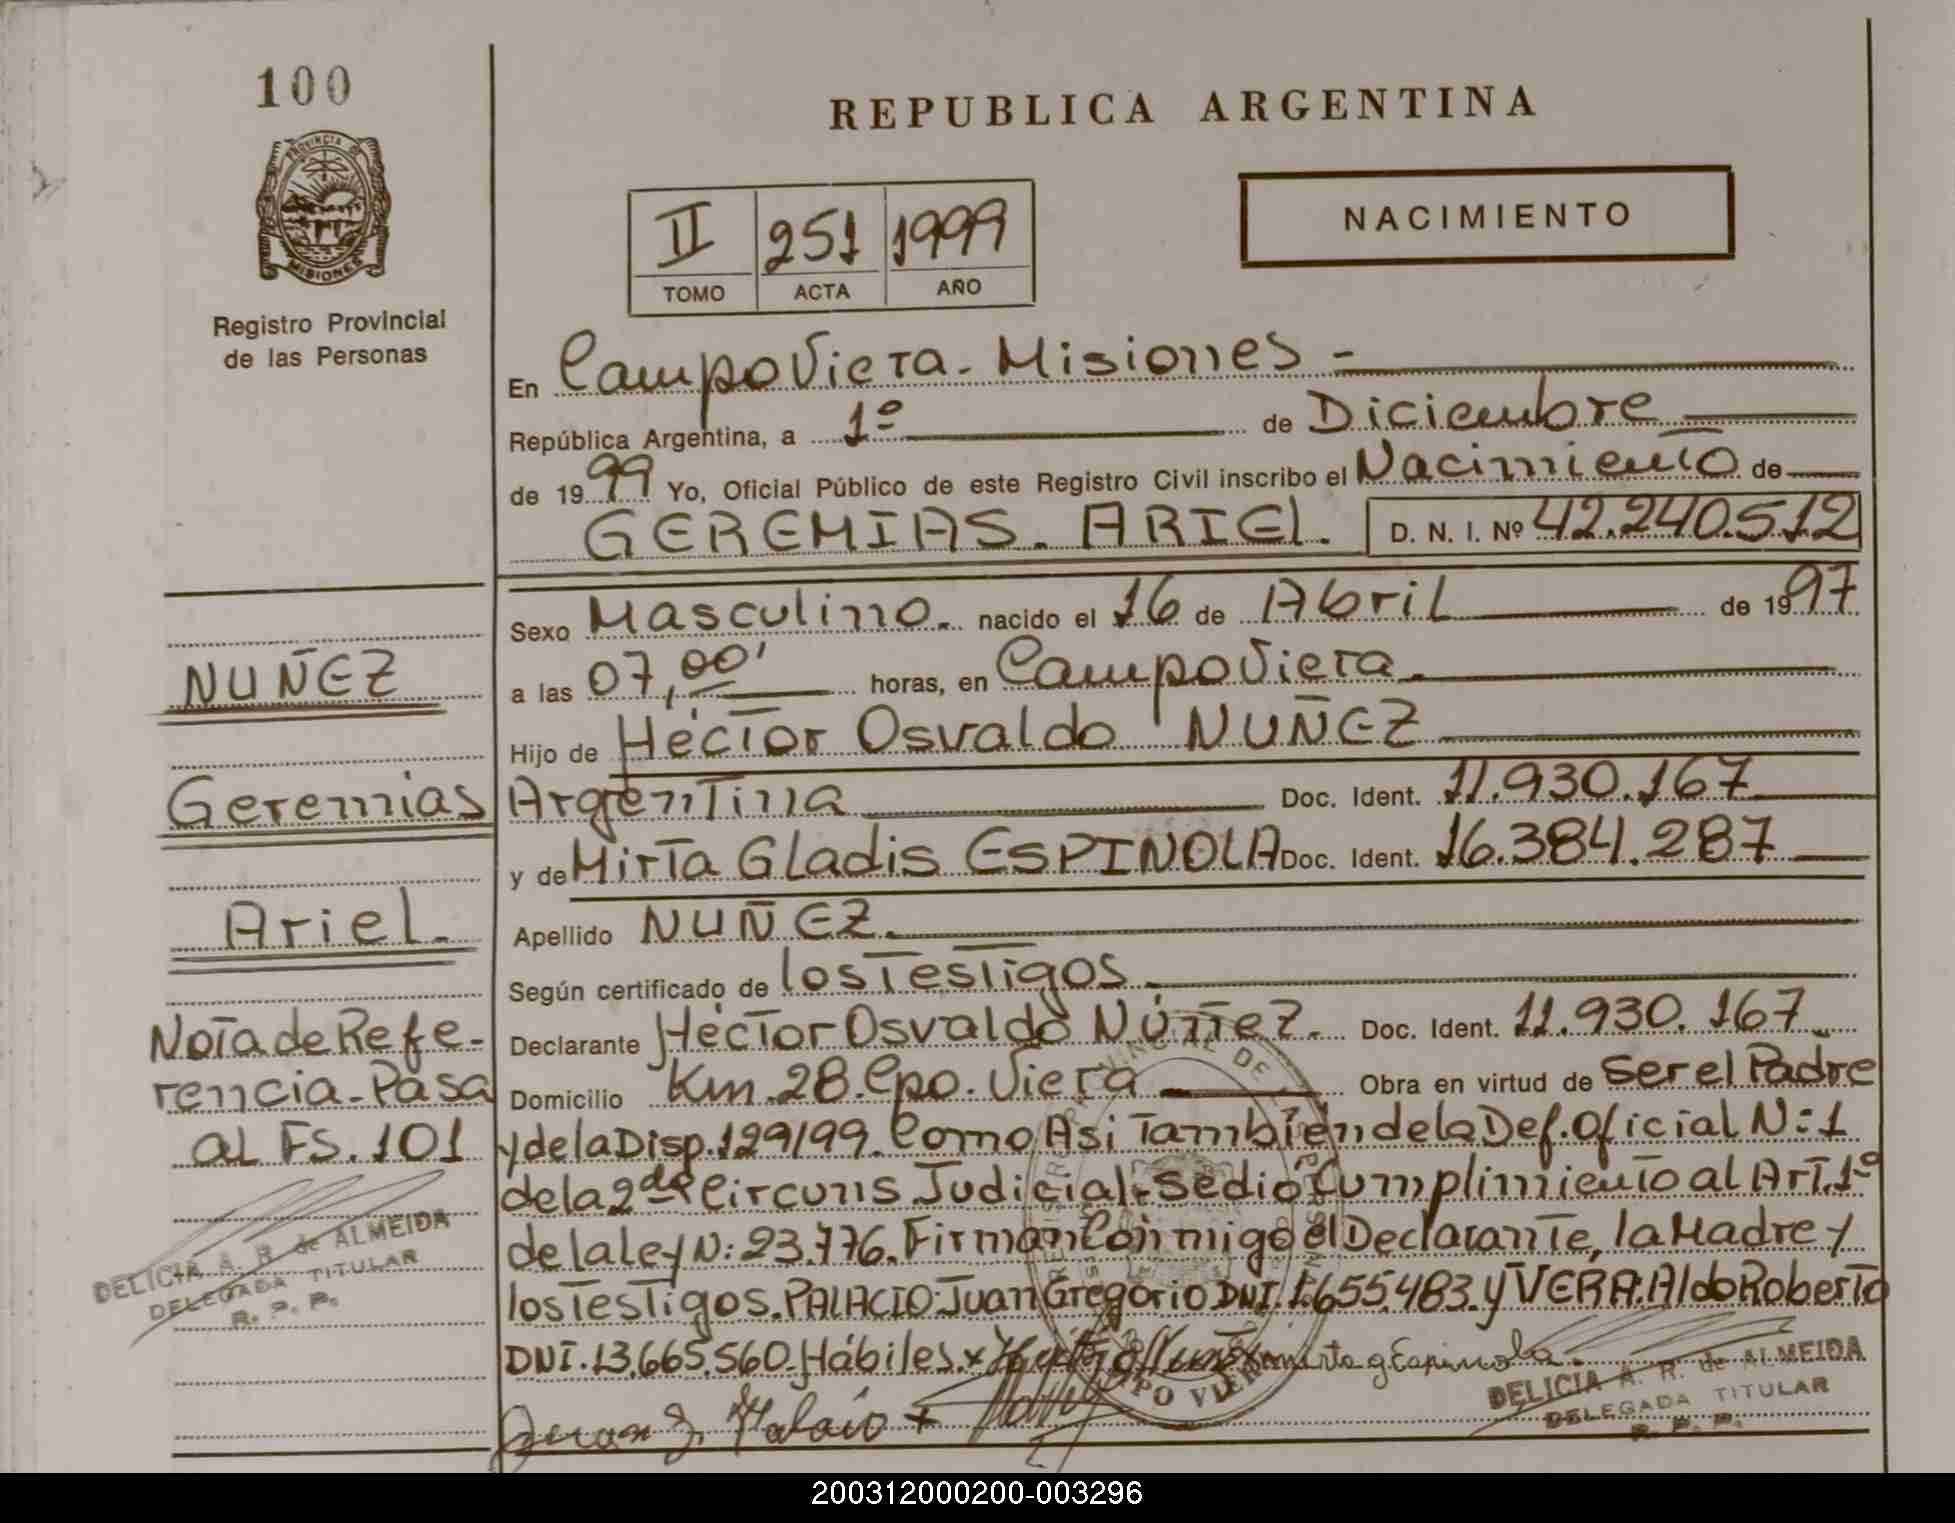 100
PROVINCIA DE
MISIONES
Registro Provincial
de las Personas
REPUBLICA ARGENTINA
II 251 1999
TOMO ACTA AÑO
NACIMIENTO
En Campo Viera - Misiones -
República Argentina, a 1º de Diciembre
de 1999 Yo, Oficial Público de este Registro Civil inscribo el Nacimiento de
GEREMIAS. ARIEL. D. N. I. Nº 42.240.512
Sexo Masculino. nacido el 16 de Abril de 1997
a las 07,00' horas, en Campo Viera.
Hijo de Héctor Osvaldo NUÑEZ
Argentina Doc. Ident. 11.930.167
y de Mirta Gladis ESPINOLA Doc. Ident. 16.384.287
Apellido NUÑEZ.
Según certificado de los Testigos.
Declarante Héctor Osvaldo Núñez. Doc. Ident. 11.930.167
Domicilio Km. 28. Cpo. Viera Obra en virtud de Ser el Padre
y de la Disp. 129/99. Como Asi Tambien de la Def. Oficial N: 1
de la 2da Circuns. Judicial - Se dió Cumplimiento al Art. 1º
de la Ley N: 23.776. Firman Conmigo el Declarante, la Madre y
los Testigos. PALACIO: Juan Gregorio DNI. 1.655.483. y VERA: Aldo Roberto
DNI. 13.665.560. Hábiles. x mirta g. Espinola.
DELICIA A. R. de ALMEIDA
DELEGADA TITULAR
R. P. P.
NUÑEZ
Geremias
Ariel.
Nota de Refe-
rencia - Pasa
al FS. 101
DELICIA A. R. de ALMEIDA
DELEGADA TITULAR
R. P. P.
200312000200-003296